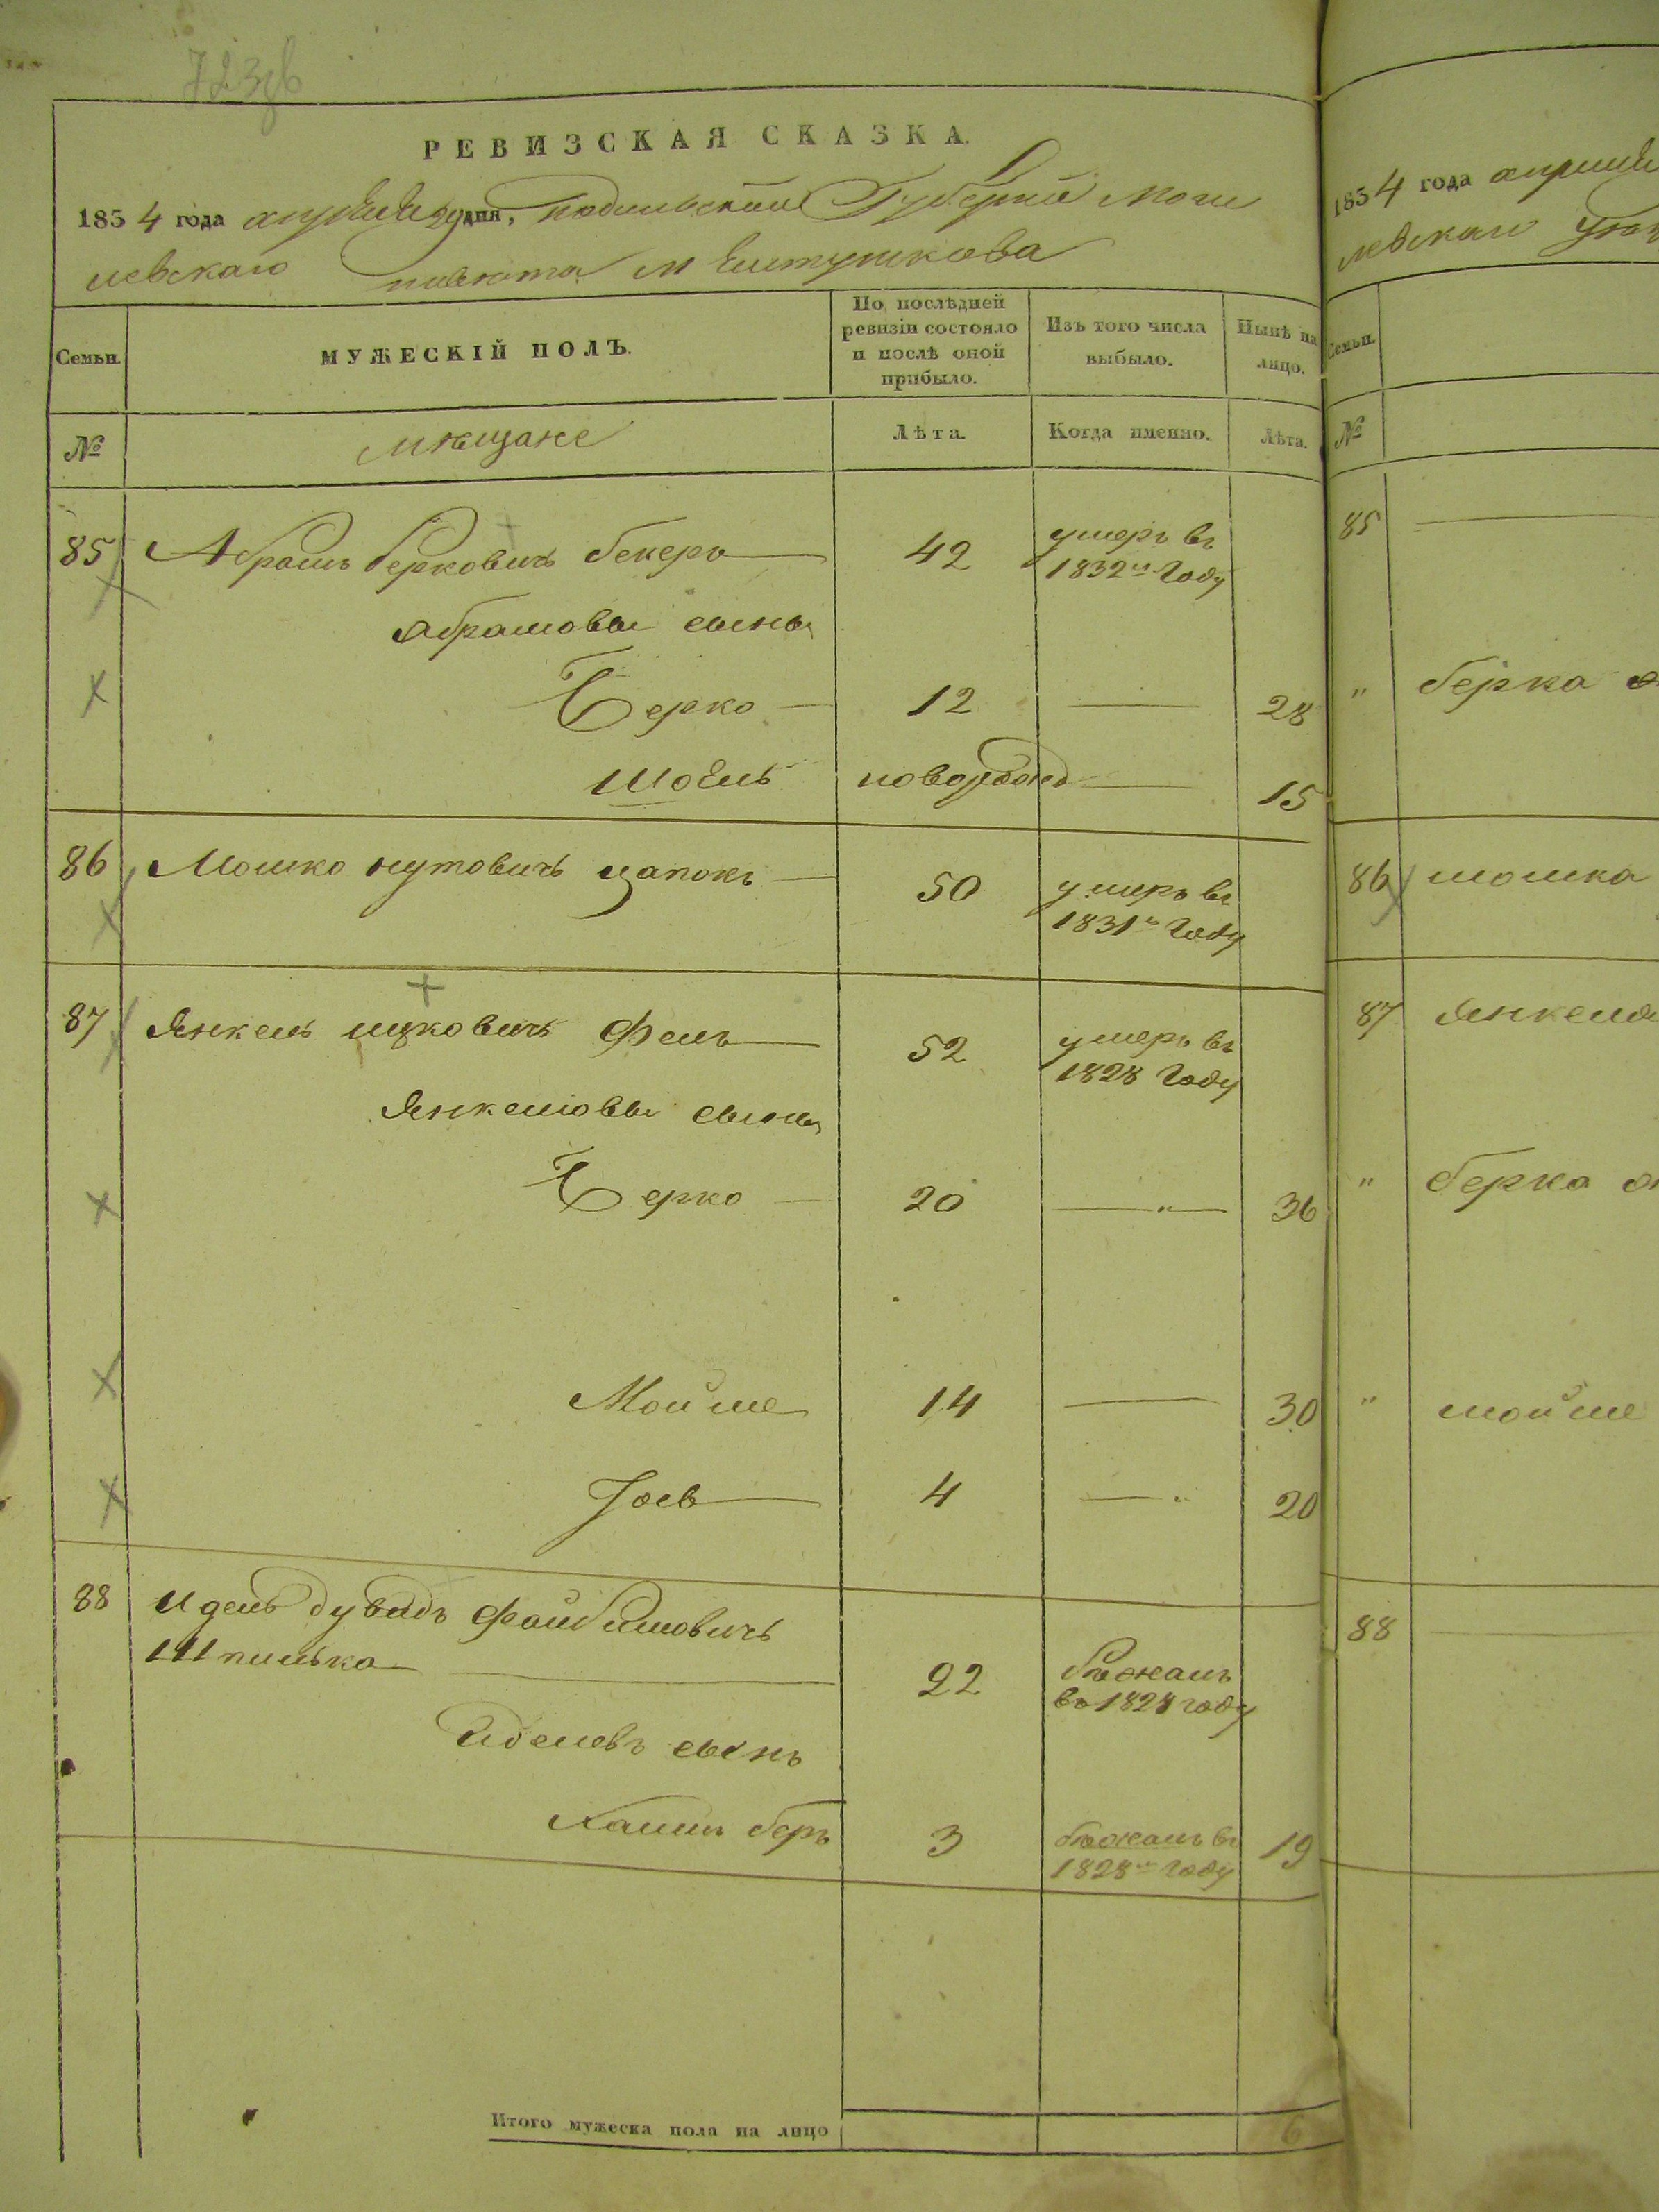 723
РЕВИЗСКАЯ СКАЗКА.
1834 года апреля 29 дня, Подольской Губернии Моги
левскаго повета м Елтушкова
Семьи.
МУЖЕСКІЙ ПОЛЪ.
По последней
ревизіи состояло
и послѣ оной
прибыло.
Изъ того числа
выбыло.
Нынѣ на
лицо.
№
мѣщане
Лѣта.
Когда именно.
Лѣта.
85 Абрамъ Берковичъ Бекеръ 42 умеръ въ
1832мъ Году
Абрамовы сыны
Берко 12 28
Шоель новорожд 15
86 Мошко нутовичъ цапокъ 50 умеръ въ
1831мъ Году
87 Янкель ицковичъ Фель 52 умеръ въ
1828 Году
Янкелювы сыны
Берко 20 " 36
Мойше 14 30
Іось 4 20
88 Идель дувидъ Файбишовичъ
Шпилька 22 бѣжалъ
въ 1828 году
Иделевъ сынъ
Хаимъ беръ 3 бѣжалъ въ
1828мъ Году 19
Итого мужеска пола на лицо 6
1834 года апреля
левскаго
Семьи.
№
85
" берка
86 мошка
87 Янкеля
" берка
" мойше
88